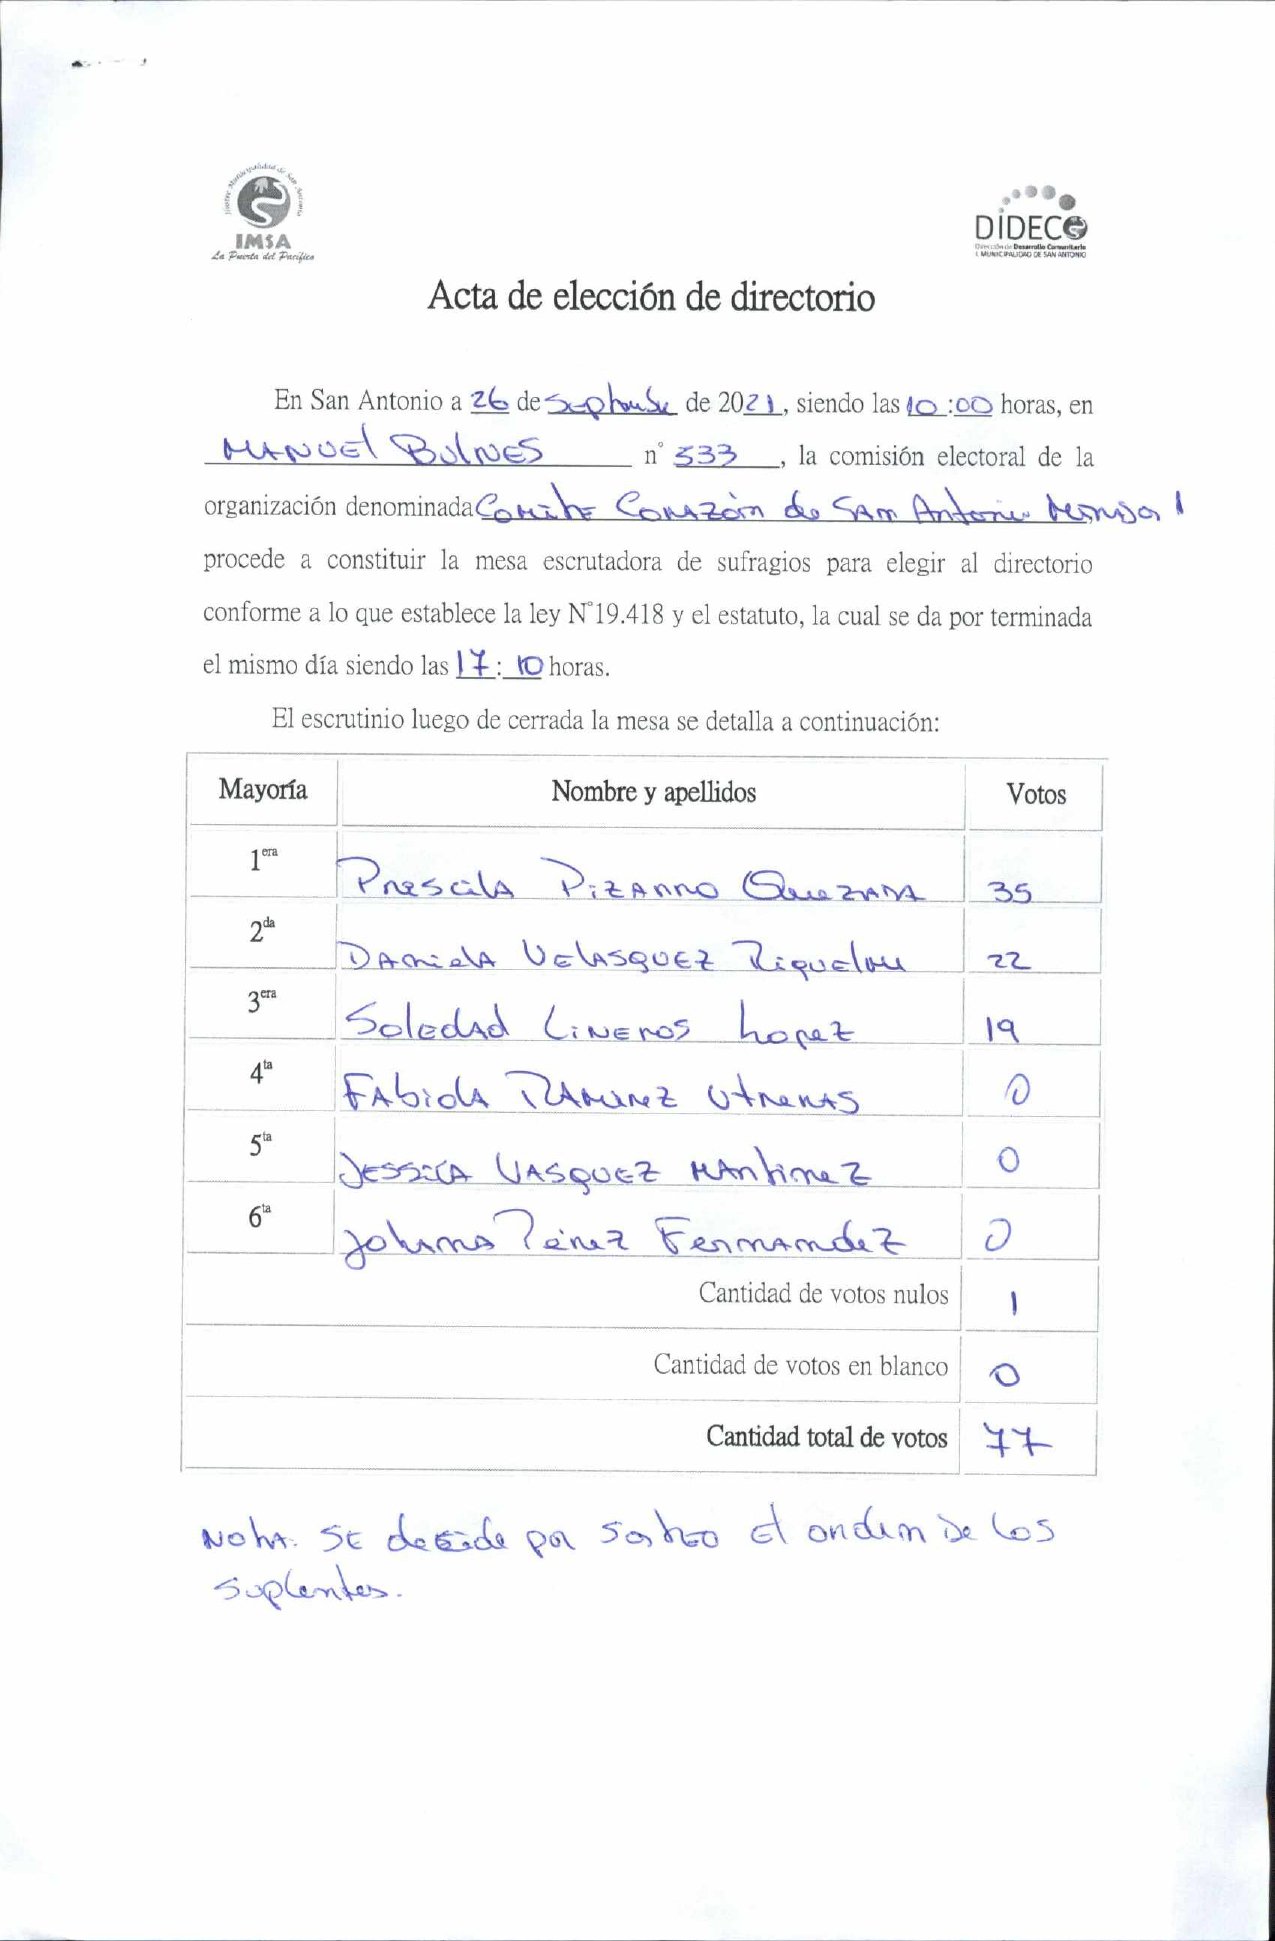 Ilustre Municipalidad de San Antonio
IMSA
La Puerta del Pacífico
DIDECO
Dirección de Desarrollo Comunitario
I. MUNICIPALIDAD DE SAN ANTONIO
Acta de elección de directorio
En San Antonio a 26 de Septiembre de 2021, siendo las 10:00 horas, en
MANUEl BULNES n° 533, la comisión electoral de la
organización denominada Comite Corazón de San Antonio
procede a constituir la mesa escrutadora de sufragios para elegir al directorio
conforme a lo que establece la ley N°19.418 y el estatuto, la cual se da por terminada
el mismo día siendo las 17:10 horas.
El escrutinio luego de cerrada la mesa se detalla a continuación:
Mayoría Nombre y apellidos Votos
1era Prescila Pizarro Quezada 35
2da Daniela Velasquez Riquelme 22
3era Soledad Lineros Lopez 19
4ta Fabiola Ramirez Utreras 0
5ta Jessica Vasquez Martinez 0
6ta Johana Pérez Fernandez 0
Cantidad de votos nulos 1
Cantidad de votos en blanco 0
Cantidad total de votos 77
Nota. Se decide por sorteo el orden de los
suplentes.